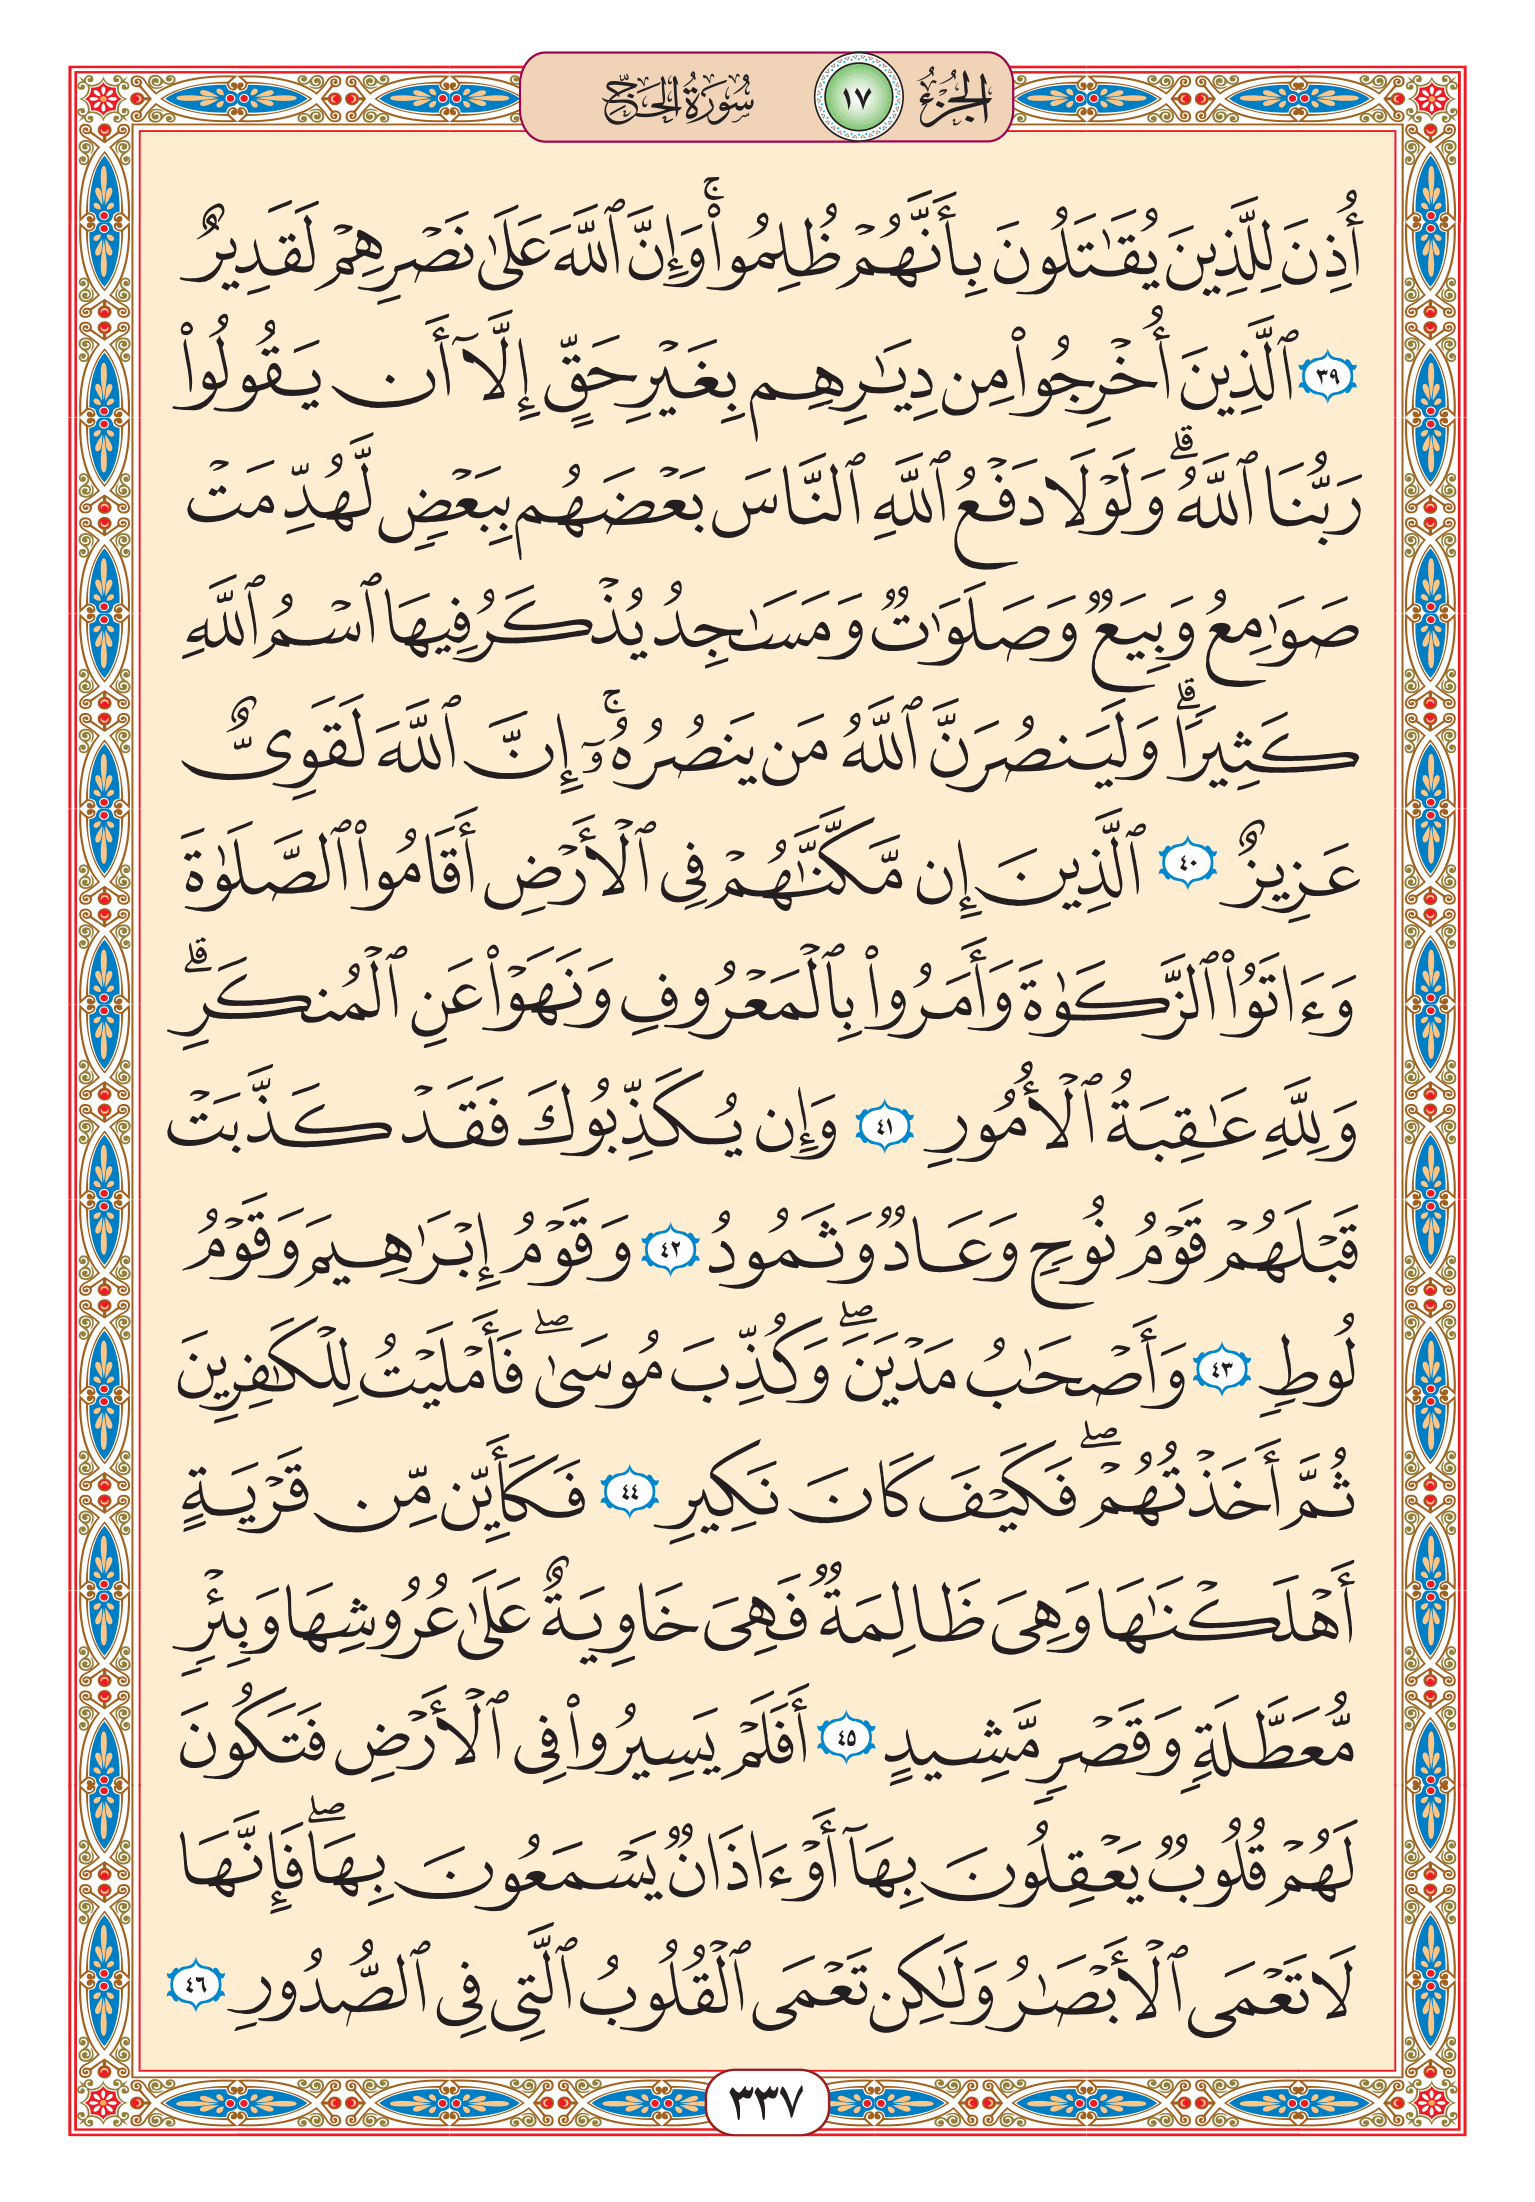 الجزء ١٧ سورة الحج
أُذِنَ لِلَّذِينَ يُقَٰتَلُونَ بِأَنَّهُمْ ظُلِمُوا۟ۚ وَإِنَّ ٱللَّهَ عَلَىٰ نَصْرِهِمْ لَقَدِيرٌ
٣٩ ٱلَّذِينَ أُخْرِجُوا۟ مِن دِيَٰرِهِم بِغَيْرِ حَقٍّ إِلَّآ أَن يَقُولُوا۟
رَبُّنَا ٱللَّهُۗ وَلَوْلَا دَفْعُ ٱللَّهِ ٱلنَّاسَ بَعْضَهُم بِبَعْضٍ لَّهُدِّمَتْ
صَوَٰمِعُ وَبِيَعٌ وَصَلَوَٰتٌ وَمَسَٰجِدُ يُذْكَرُ فِيهَا ٱسْمُ ٱللَّهِ
كَثِيرًاۗ وَلَيَنصُرَنَّ ٱللَّهُ مَن يَنصُرُهُۥٓۚ إِنَّ ٱللَّهَ لَقَوِىٌّ
عَزِيزٌ ٤٠ ٱلَّذِينَ إِن مَّكَّنَّٰهُمْ فِى ٱلْأَرْضِ أَقَامُوا۟ ٱلصَّلَوٰةَ
وَءَاتَوُا۟ ٱلزَّكَوٰةَ وَأَمَرُوا۟ بِٱلْمَعْرُوفِ وَنَهَوْا۟ عَنِ ٱلْمُنكَرِۗ
وَلِلَّهِ عَٰقِبَةُ ٱلْأُمُورِ ٤١ وَإِن يُكَذِّبُوكَ فَقَدْ كَذَّبَتْ
قَبْلَهُمْ قَوْمُ نُوحٍ وَعَادٌ وَثَمُودُ ٤٢ وَقَوْمُ إِبْرَٰهِيمَ وَقَوْمُ
لُوطٍ ٤٣ وَأَصْحَٰبُ مَدْيَنَۖ وَكُذِّبَ مُوسَىٰۖ فَأَمْلَيْتُ لِلْكَٰفِرِينَ
ثُمَّ أَخَذْتُهُمْۖ فَكَيْفَ كَانَ نَكِيرِ ٤٤ فَكَأَيِّن مِّن قَرْيَةٍ
أَهْلَكْنَٰهَا وَهِىَ ظَالِمَةٌ فَهِىَ خَاوِيَةٌ عَلَىٰ عُرُوشِهَا وَبِئْرٍ
مُّعَطَّلَةٍ وَقَصْرٍ مَّشِيدٍ ٤٥ أَفَلَمْ يَسِيرُوا۟ فِى ٱلْأَرْضِ فَتَكُونَ
لَهُمْ قُلُوبٌ يَعْقِلُونَ بِهَآ أَوْ ءَاذَانٌ يَسْمَعُونَ بِهَاۖ فَإِنَّهَا
لَا تَعْمَى ٱلْأَبْصَٰرُ وَلَٰكِن تَعْمَى ٱلْقُلُوبُ ٱلَّتِى فِى ٱلصُّدُورِ ٤٦
٣٣٧